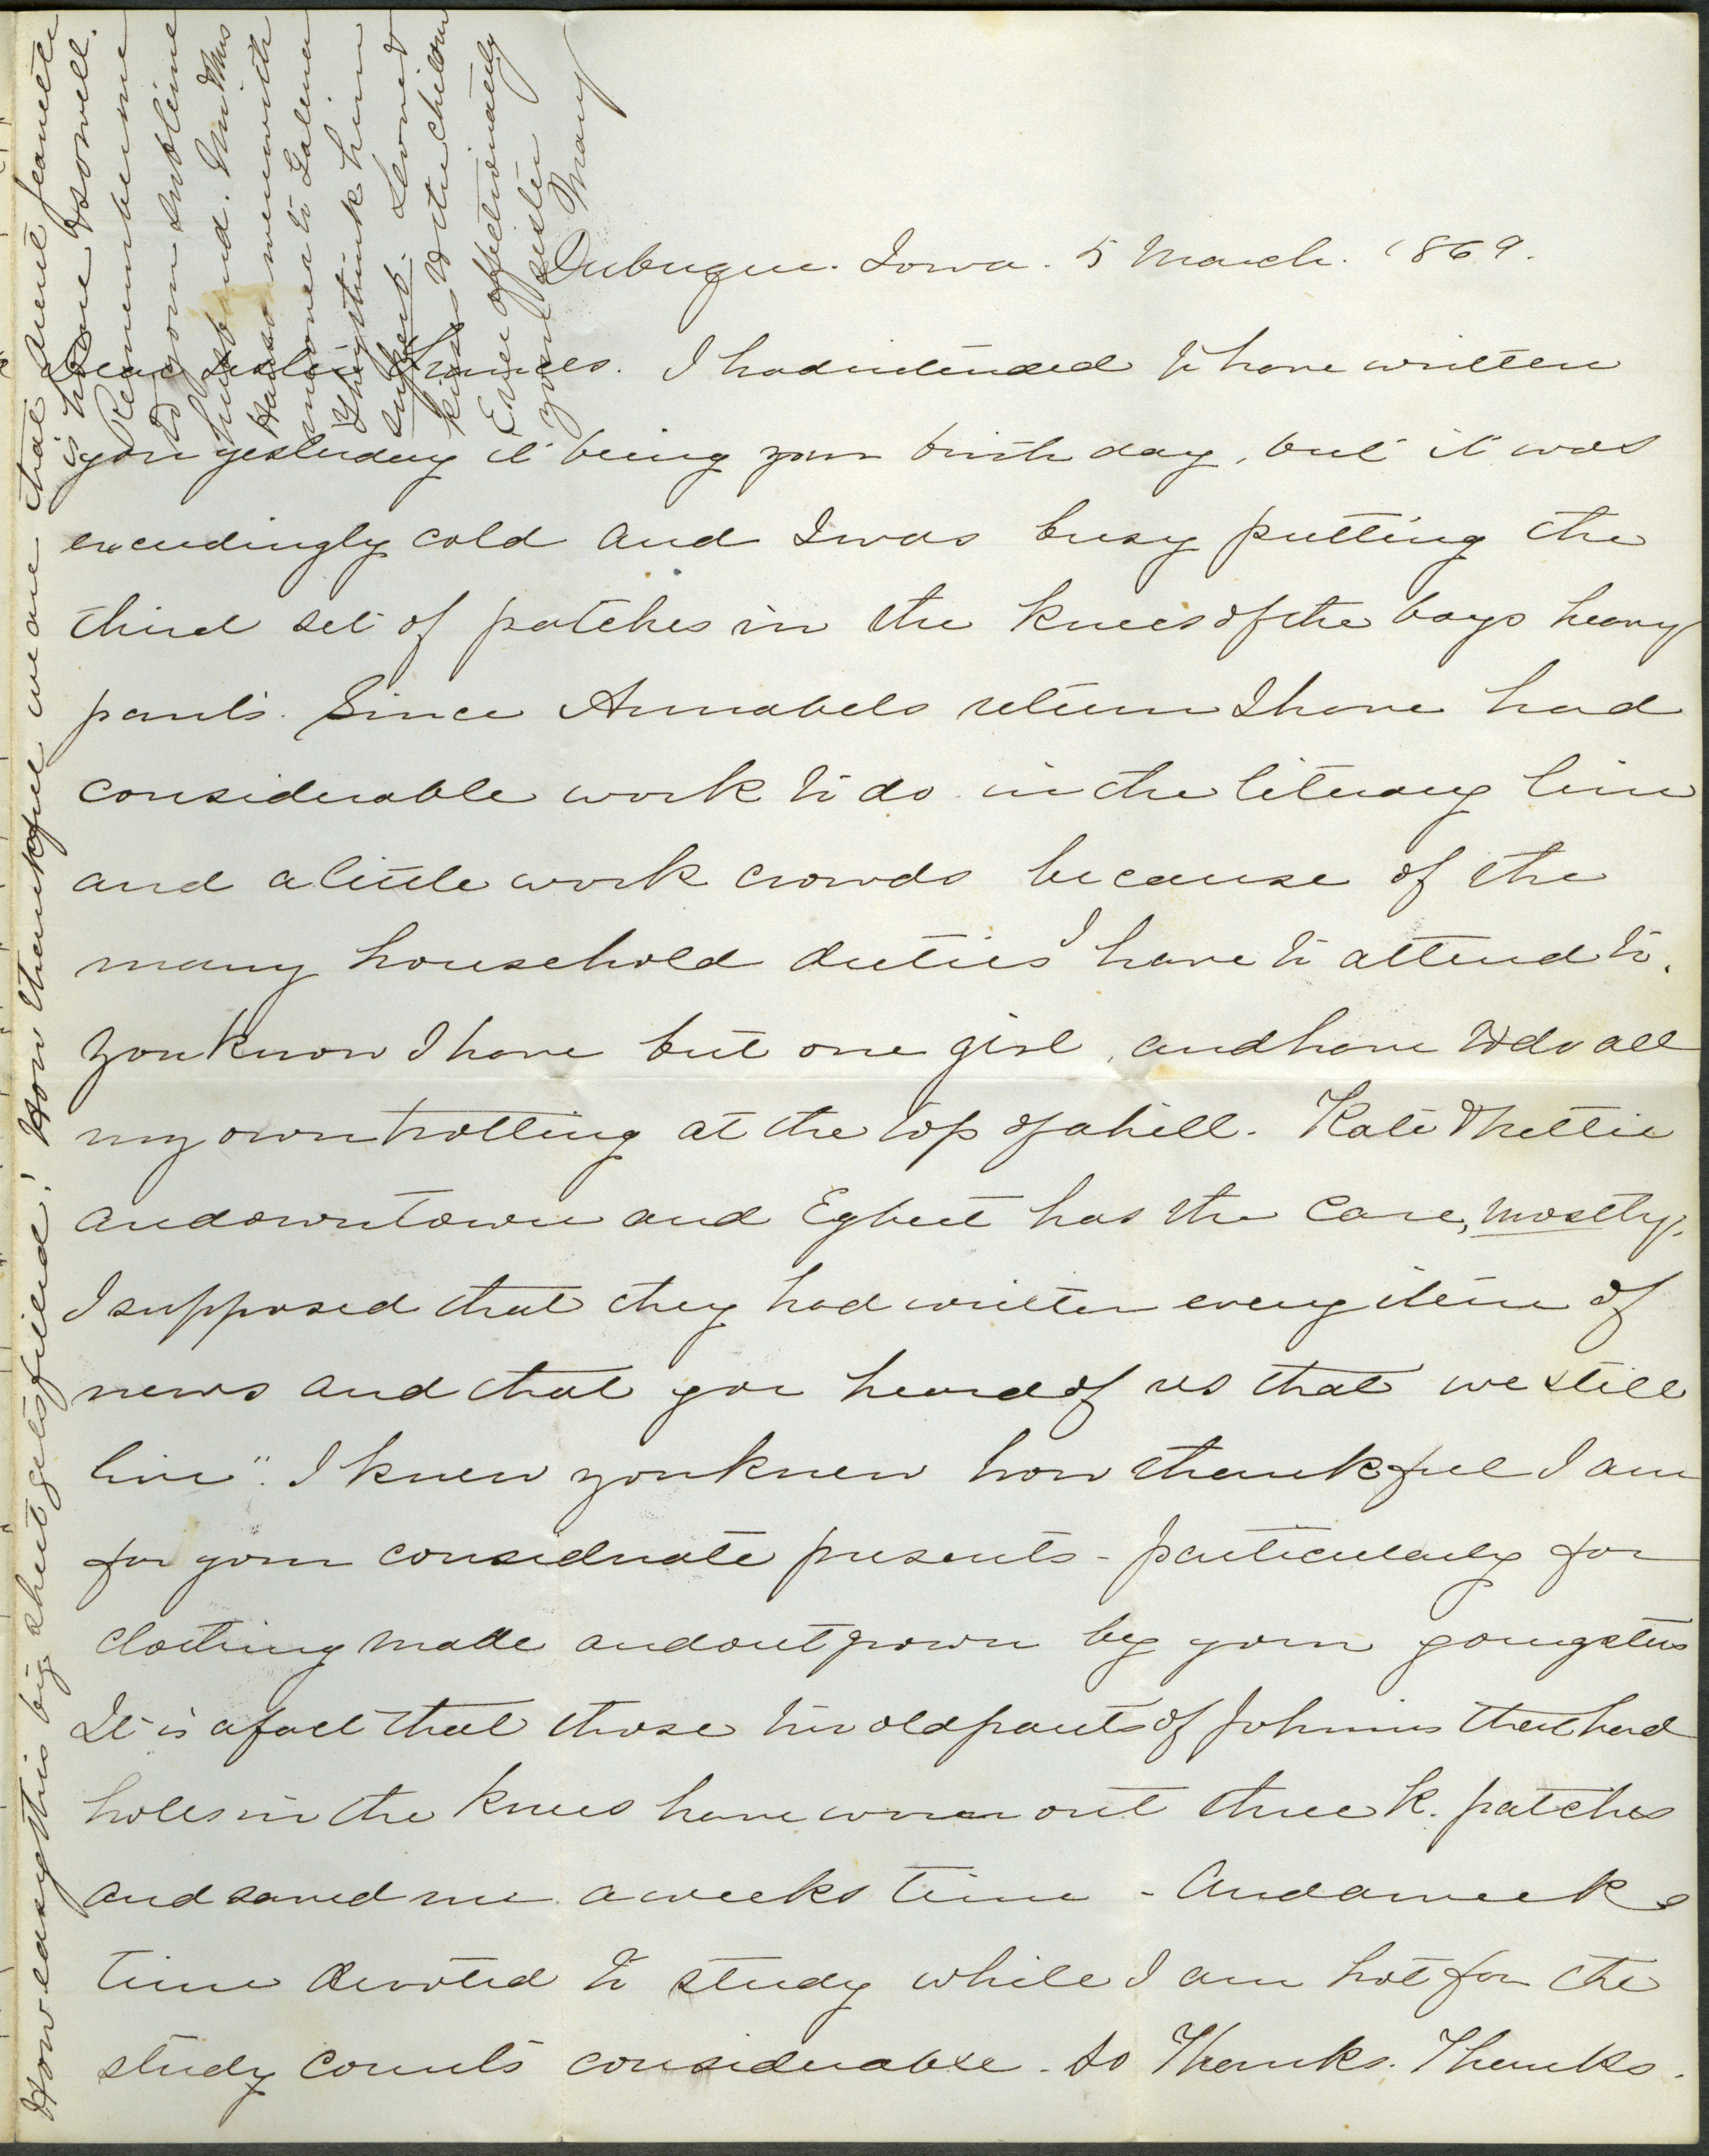 Dubuque. Iowa. 5 March. 1869.
Dear sister Frances. I had intended to have written
you yesterday it being your birth day, but it was
exceedingly cold and I was busy putting the
third set of patches in the knees of the boys heavy
pants. Since Annabels return I have had
considerable work to do in the literary line
and a little work crowds because of the
many household duties I have to attend to.
You know I have but one girl, and have to do all
my own trotting at the top of a hill. Kate & Nettie
are down town and Egbert has the care, mostly.
I supposed that they had written every item of
news and that you heard of us that we still
live". I knew you knew how thankful I am
for your considerate presents - particularly for
clothing made and out grown by your youngsters
It is a fact that those two old pants of Johnnis that had
holes in the knees have worn out three k. patches
and saved me a weeks time - And a weeks
time devoted to study while I am hot for the
study counts considerable - so Thanks. Thanks.
How easy this big sheet gets filled! How thankful we are that Aunt Jeanette
is home & so well.
Remember me
to your sublime
husband. Mr & Mrs
went with
me over to Galena
They think him
superb. Love and
kisses to the children
Ever affectionately
your sister
Mary